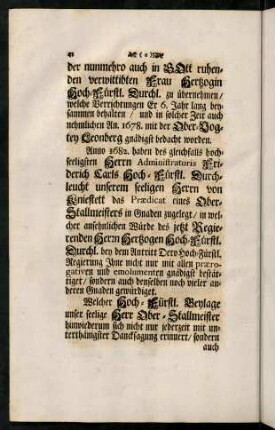 42
der nunmehro auch in GOtt ruhen-
den verwittibten Frau Hertzogin
Hoch-Fürstl. Durchl. zu übernehmen/
welche Verrichtungen Er 6. Jahr lang bey-
sammen behalten / und in solcher Zeit auch
nehmlichen An. 1678. mit der Ober-Vog-
tey Leonberg gnädigst bedacht worden.
Anno 1682. haben des gleichfalls hoch-
seeligsten Herrn Administratoris Fri-
derich Carls Hoch-Fürstl. Durch-
leucht unserem seeligen Herrn von
Kniestett das Prædicat eines Ober-
Stallmeisters in Gnaden zugelegt/ in wel-
cher ansehnlichen Würde des jetzt Regie-
renden Herrn Hertzogen Hoch-Fürstl.
Durchl. bey dem Antritt Dero Hoch-Fürstl.
Regierung Ihne nicht nur mit allen præro-
gativen und emolumenten gnädigst bestät-
tiget/ sondern auch denselben noch vieler an-
deren Gnaden gewürdiget.
Welcher Hoch-Fürstl. Beylage
unser seelige Herr Ober-Stallmeister
hinwiederum sich nicht nur jederzeit mit un-
terthänigster Dancksagung erinnert/ sondern
auch